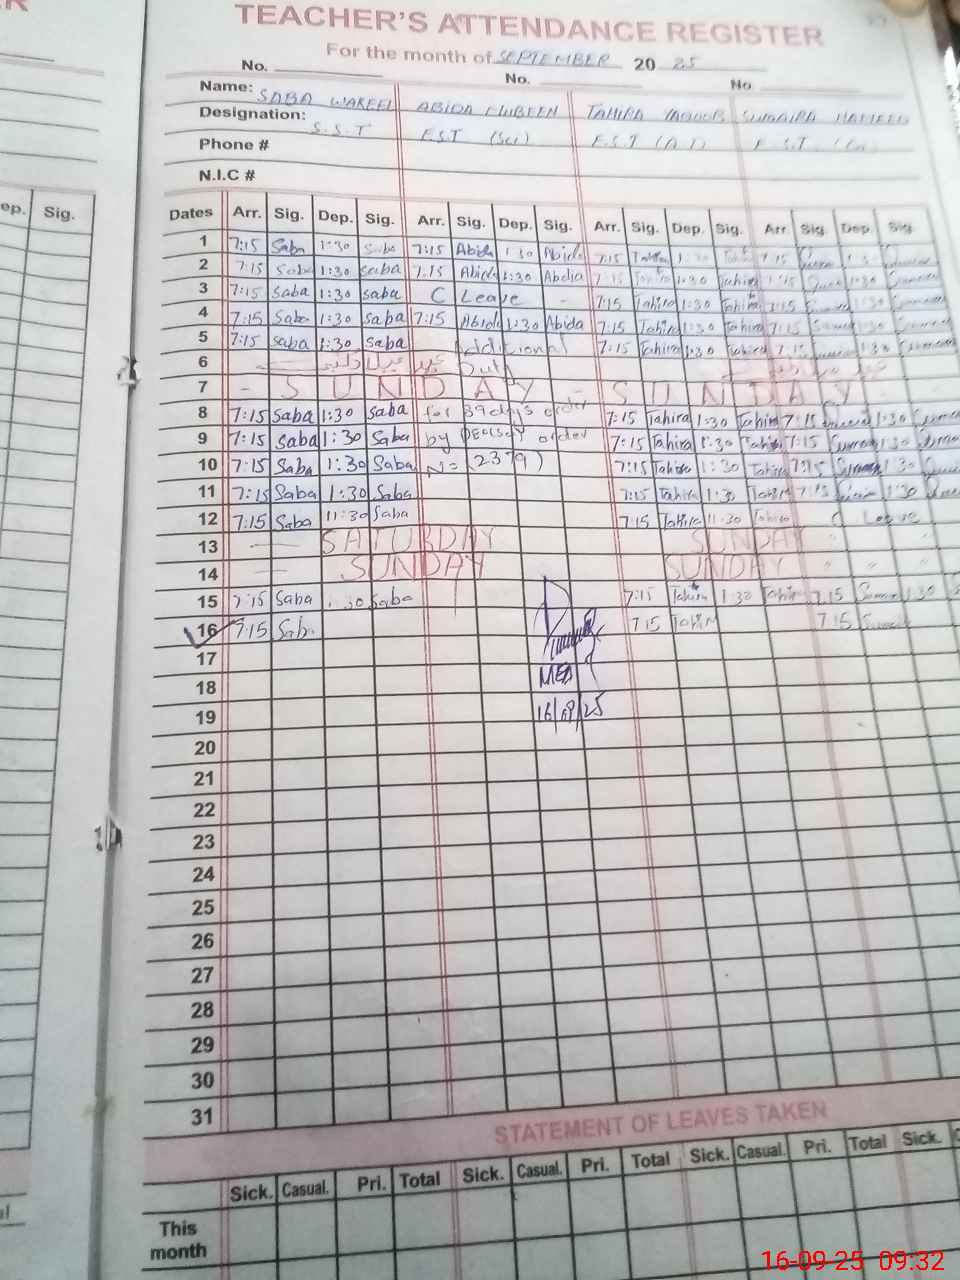 TEACHER'S ATTENDANCE REGISTER
For the month of SEPTEMBER 20 25
No. No. No.
Name: SABA WAKEEL ABIDA MUBEEN TAHIRA YAQOOB SUMAIRA HAMEED
Designation: S.S.T E.S.T (Sci) E.S.T
Phone #
N.I.C #
ep. Sig.
Dates Arr. Sig. Dep. Sig. Arr. Sig. Dep. Sig. Arr. Sig. Dep. Sig. Arr. Sig. Dep. Sig.
1 7:15 Saba 1:30 Saba 7:15 Abida 1:30 Abida 7:15 Tahira 7:15
2 7:15 Saba 1:30 Saba 7:15 Abida 1:30 Abida 7:15 Tahira 1:30 Tahira 7:15
3 7:15 Saba 1:30 saba C Leave - 7:15 Tahira 1:30 Tahira 7:15 1:30
4 7:15 Saba 1:30 saba 7:15 Abida 1:30 Abida 7:15 Tahira 1:30 Tahira 7:15 1:30
5 7:15 saba 1:30 saba Additional 7:15 Tahira 1:30 Tahira 7:15 1:30
6 عید میلاد النبی Duty
7 - S U N D A Y - S U N D A Y
8 7:15 Saba 1:30 saba for 39 days order 7:15 Tahira 1:30 Tahira 7:15 1:30
9 7:15 saba 1:30 Saba by order 7:15 Tahira 1:30 Tahira 7:15 1:30
10 7:15 Saba 1:30 Saba N= (2379) 7:15 Tahira 1:30 Tahira 7:15 1:30
11 7:15 Saba 1:30 Saba 7:15 Tahira 1:30 Tahira 7:15 1:30
12 7:15 Saba 11:30 Saba 7:15 Tahira 11:30 Tahira C Leave
13 SATURDAY SUNDAY " " "
14 SUNDAY SUNDAY " " "
15 7:15 Saba 1:30 Saba 7:15 Tahira 1:30 Tahira 7:15 1:30
16 7:15 Saba 7:15 Tahir 7:15
17
18 MEA
19 16/09/25
20
21
22
23
24
25
26
27
28
29
30
31
STATEMENT OF LEAVES TAKEN
Sick. Casual. Pri. Total Sick. Casual. Pri. Total Sick. Casual. Pri. Total Sick.
This
month
16-09-25 09:32